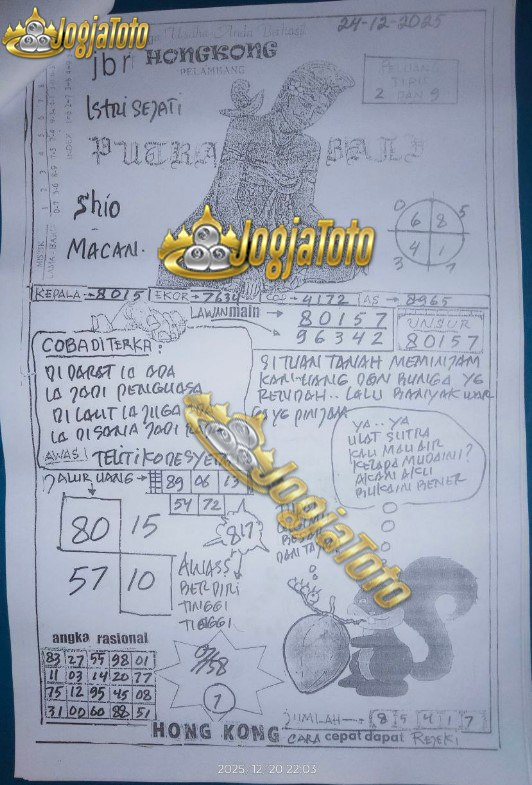 JogjaToto
Usaha Anda Berhasil
24-12-2025
jbr HONGKONG
PELAMBANG
2 DAN 9
ISTRI SEJATI
PUTRA BALI
Shio
MACAN.
JogjaToto
0 6 8 5
3 4 1 7
KEPALA → 8015 EKOR → 7634 COC → 4172 AS → 8965
LAWAN main → 80157
96342
UNSUR
80157
COBA DITERKA:
DI DARAT IA ADA
IA JADI PENGUASA
DI LAUT IA JUGA
IA DISANA JADI
AWAS! TELITI KODE SYE
SI TUAN TANAH MEMINJAM
KAN UANG DAN BUNGA YG
RENDAH.. LALU BANYAK WAR
GA YG PINJAM
YA.. YA
ULAT SUTRA
KAU MAU AIR
KELAPA MUDAINI?
AKAN AKU
BUKAIN BENER
JALUR UANG → 89 06 13
54 72
80 15
57 10
817
AWASS!
BERDIRI
TINGGI
TINGGI
JogjaToto
angka rasional
83 27 55 98 01
11 03 14 20 77
75 12 95 45 08
31 00 60 88 51
0/58
7
JUMLAH → 8 5 4 1 7
HONG KONG CARA cepat dapat REJEKI
2025-12-20 22:03